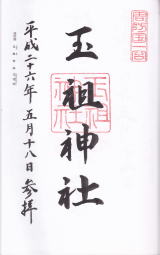 周防国一宮
玉祖神社
平成二十六年五月十八日参拝